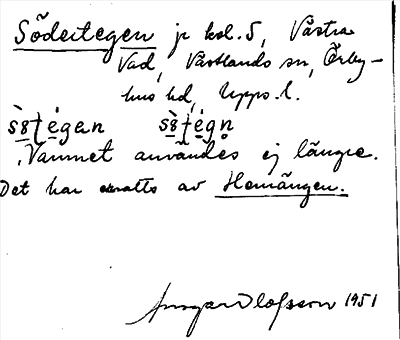 Södertegen jr kol. 5, Västra
Vad, Västlands sn, Örby-
hus hd, Upps. l.
Namnet användes ej längre.
Det har ersatts av Hemängen.
Ansgar Olofsson 1951